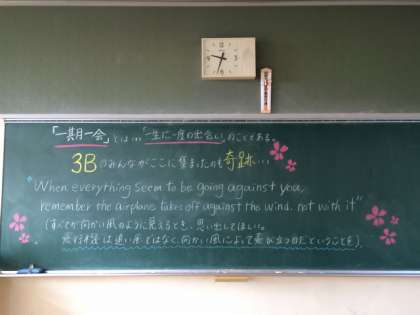 「一期一会」とは、「一生に一度の出会い」のことである。
3Bのみんながここに集まったのも奇跡…
"When everything seem to be going against you,
remember the airplane takes off against the wind. not with it"
(すべてが向かい風のように見えるとき、思い出してほしい。
飛行機は追い風ではなく、向かい風によって飛び立つのだということを)